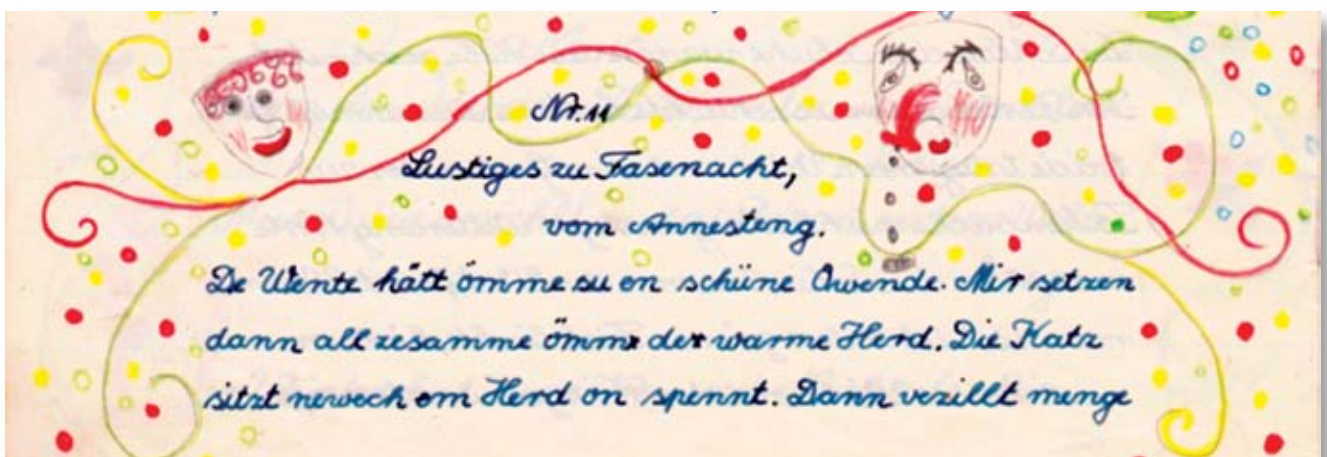 Nr. 11
Lustiges zu Fasenacht,
vom Annesteng.
De Wente hätt ömme su en schüne Owende. Mir setzen
dann all zesamme ömm der warme Herd. Die Katz
sitzt neweck em Herd on spennt. Dann vezillt menge